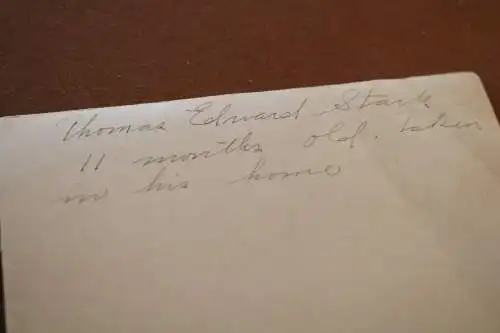 Thomas Edward Stark
11 months old. taken
in his home